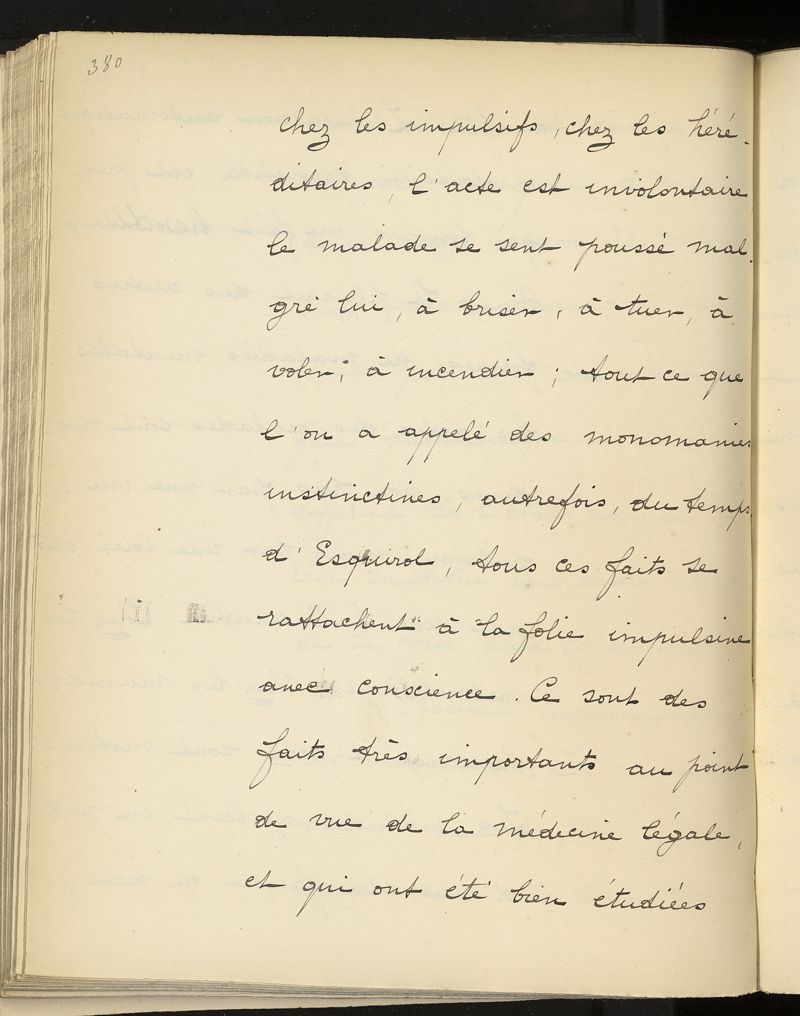 380
chez les impulsifs, chez les héré-
ditaires, l'acte est involontaire
le malade se sent poussé mal-
gré lui, à briser, à tuer, à
voler; à incendier; tout ce que
l'on a appelé des monomanies
instinctives, autrefois, du temps
d'Esquirol, tous ces faits se
rattachent à la folie impulsive
avec conscience. Ce sont des
faits très importants au point
de vue de la médecine légale,
et qui ont été bien étudiées